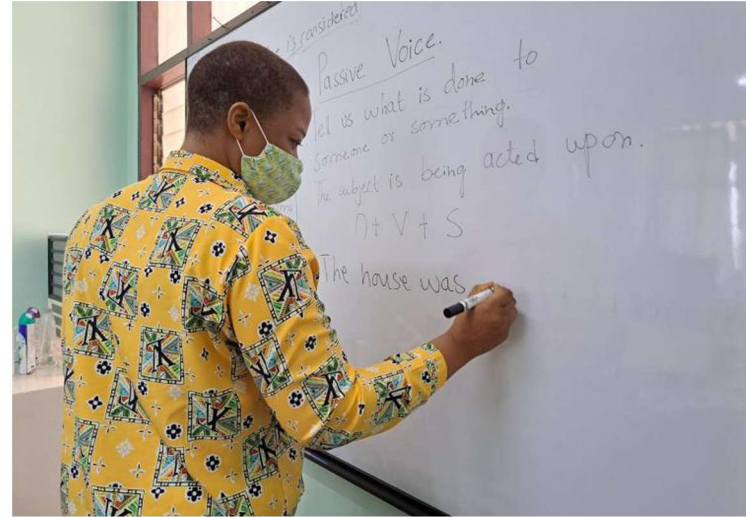 is considered
Passive Voice.
tell us what is done to
someone or something.
The subject is being acted upon.
O + V + S
The house was